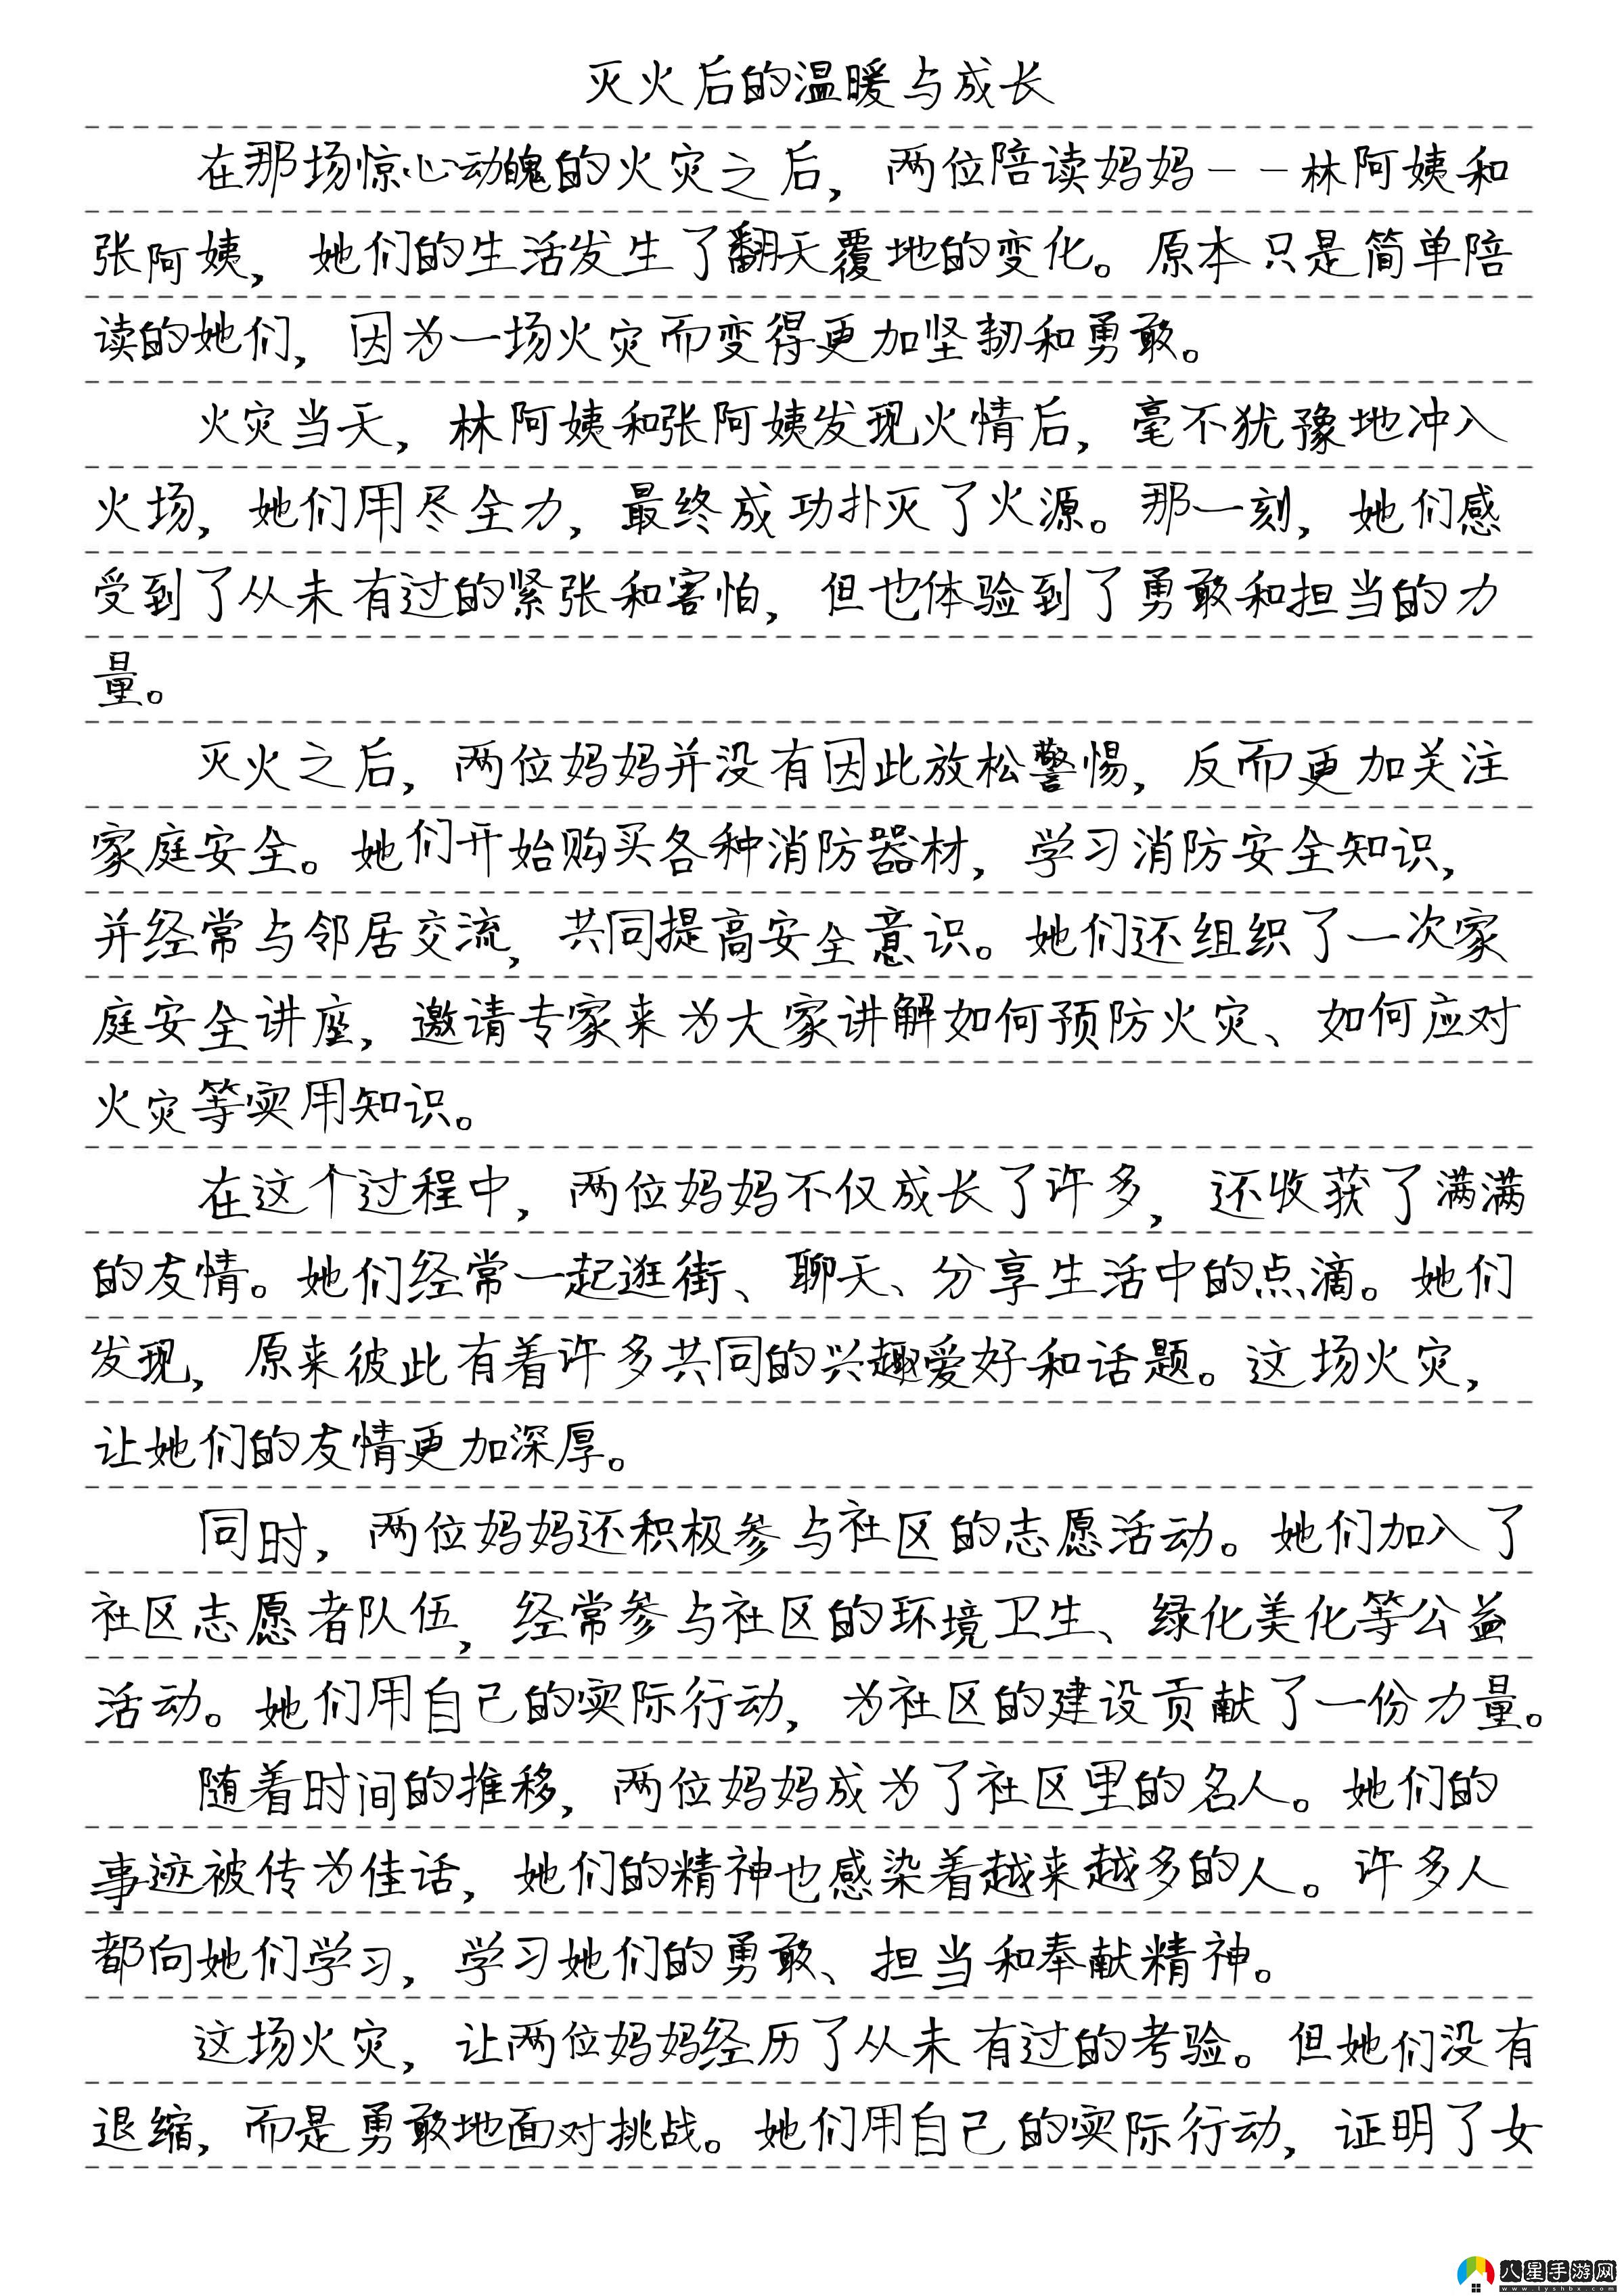 灭火后的温暖与成长
在那场惊心动魄的火灾之后，两位陪读妈妈--林阿姨和
张阿姨，她们的生活发生了翻天覆地的变化。原本只是简单陪
读的她们，因为一场火灾而变得更加坚韧和勇敢。
火灾当天，林阿姨和张阿姨发现火情后，毫不犹豫地冲入
火场，她们用尽全力，最终成功扑灭了火源。那一刻，她们感
受到了从未有过的紧张和害怕，但也体验到了勇敢和担当的力
量。
灭火之后，两位妈妈并没有因此放松警惕，反而更加关注
家庭安全。她们开始购买各种消防器材，学习消防安全知识，
并经常与邻居交流，共同提高安全意识。她们还组织了一次家
庭安全讲座，邀请专家来为大家讲解如何预防火灾、如何应对
火灾等实用知识。
在这个过程中，两位妈妈不仅成长了许多，还收获了满满
的友情。她们经常一起逛街、聊天、分享生活中的点滴。她们
发现，原来彼此有着许多共同的兴趣爱好和话题。这场火灾，
让她们的友情更加深厚。
同时，两位妈妈还积极参与社区的志愿活动。她们加入了
社区志愿者队伍，经常参与社区的环境卫生、绿化美化等公益
活动。她们用自己的实际行动，为社区的建设贡献了一份力量。
随着时间的推移，两位妈妈成为了社区里的名人。她们的
事迹被传为佳话，她们的精神也感染着越来越多的人。许多人
都向她们学习，学习她们的勇敢、担当和奉献精神。
这场火灾，让两位妈妈经历了从未有过的考验。但她们没有
退缩，而是勇敢地面对挑战。她们用自己的实际行动，证明了女
八星手游网
www.lyshbx.com